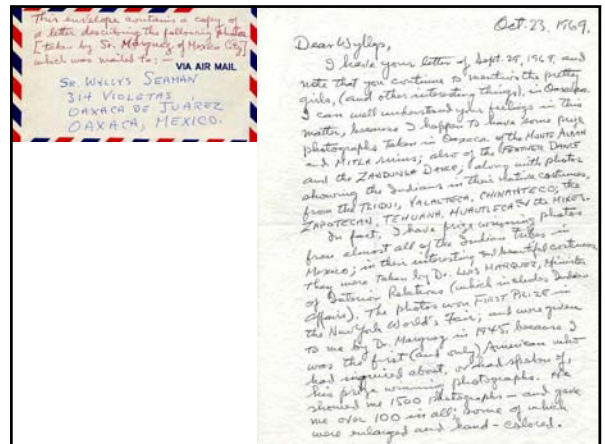 This envelope contains a copy of
a letter describing the following photos
[taken by Sr. Marquez of Mexico City]
which was mailed to: —
VIA AIR MAIL
SR. WYLLYS SEAMAN
314 VIOLETAS
OAXACA DE JUAREZ
OAXACA, MEXICO.
Oct. 23, 1969.
Dear Wyllys,
I have your letter of Sept. 25, 1969, and
note that you continue to mention the pretty
girls, (and other interesting things), in Oaxaca.
I can well understand your feelings in this
matter, because I happen to have some prize
photographs taken in Oaxaca of the MONTE ALBAN
and MITLA ruins; also of the FEATHER DANCE
and the ZANDUNGA DANCE; along with photos
showing the Indians in their native costumes,
from the YALALTECA, CHINANTECO; the
ZAPOTECAN, TEHUANA, HUAUTLECA & the MIXES.
In fact, I have prize winning photos
from almost all of the Indian Tribes in
Mexico; in their interesting and beautiful costumes
They were taken by Dr. LUIS MARQUEZ, Minister
of Interior Relations (which includes Indian
Affairs). The photos won FIRST PRIZE in
the New York World's Fair; and were given
to me by Dr. Marquez in 1945, because I
was the first (and only) American who
had inquired about, or had spoken of,
his prize winning photographs. He
showed me 1500 photographs — and gave
me over 100 in all; some of which
were enlarged and hand-colored.